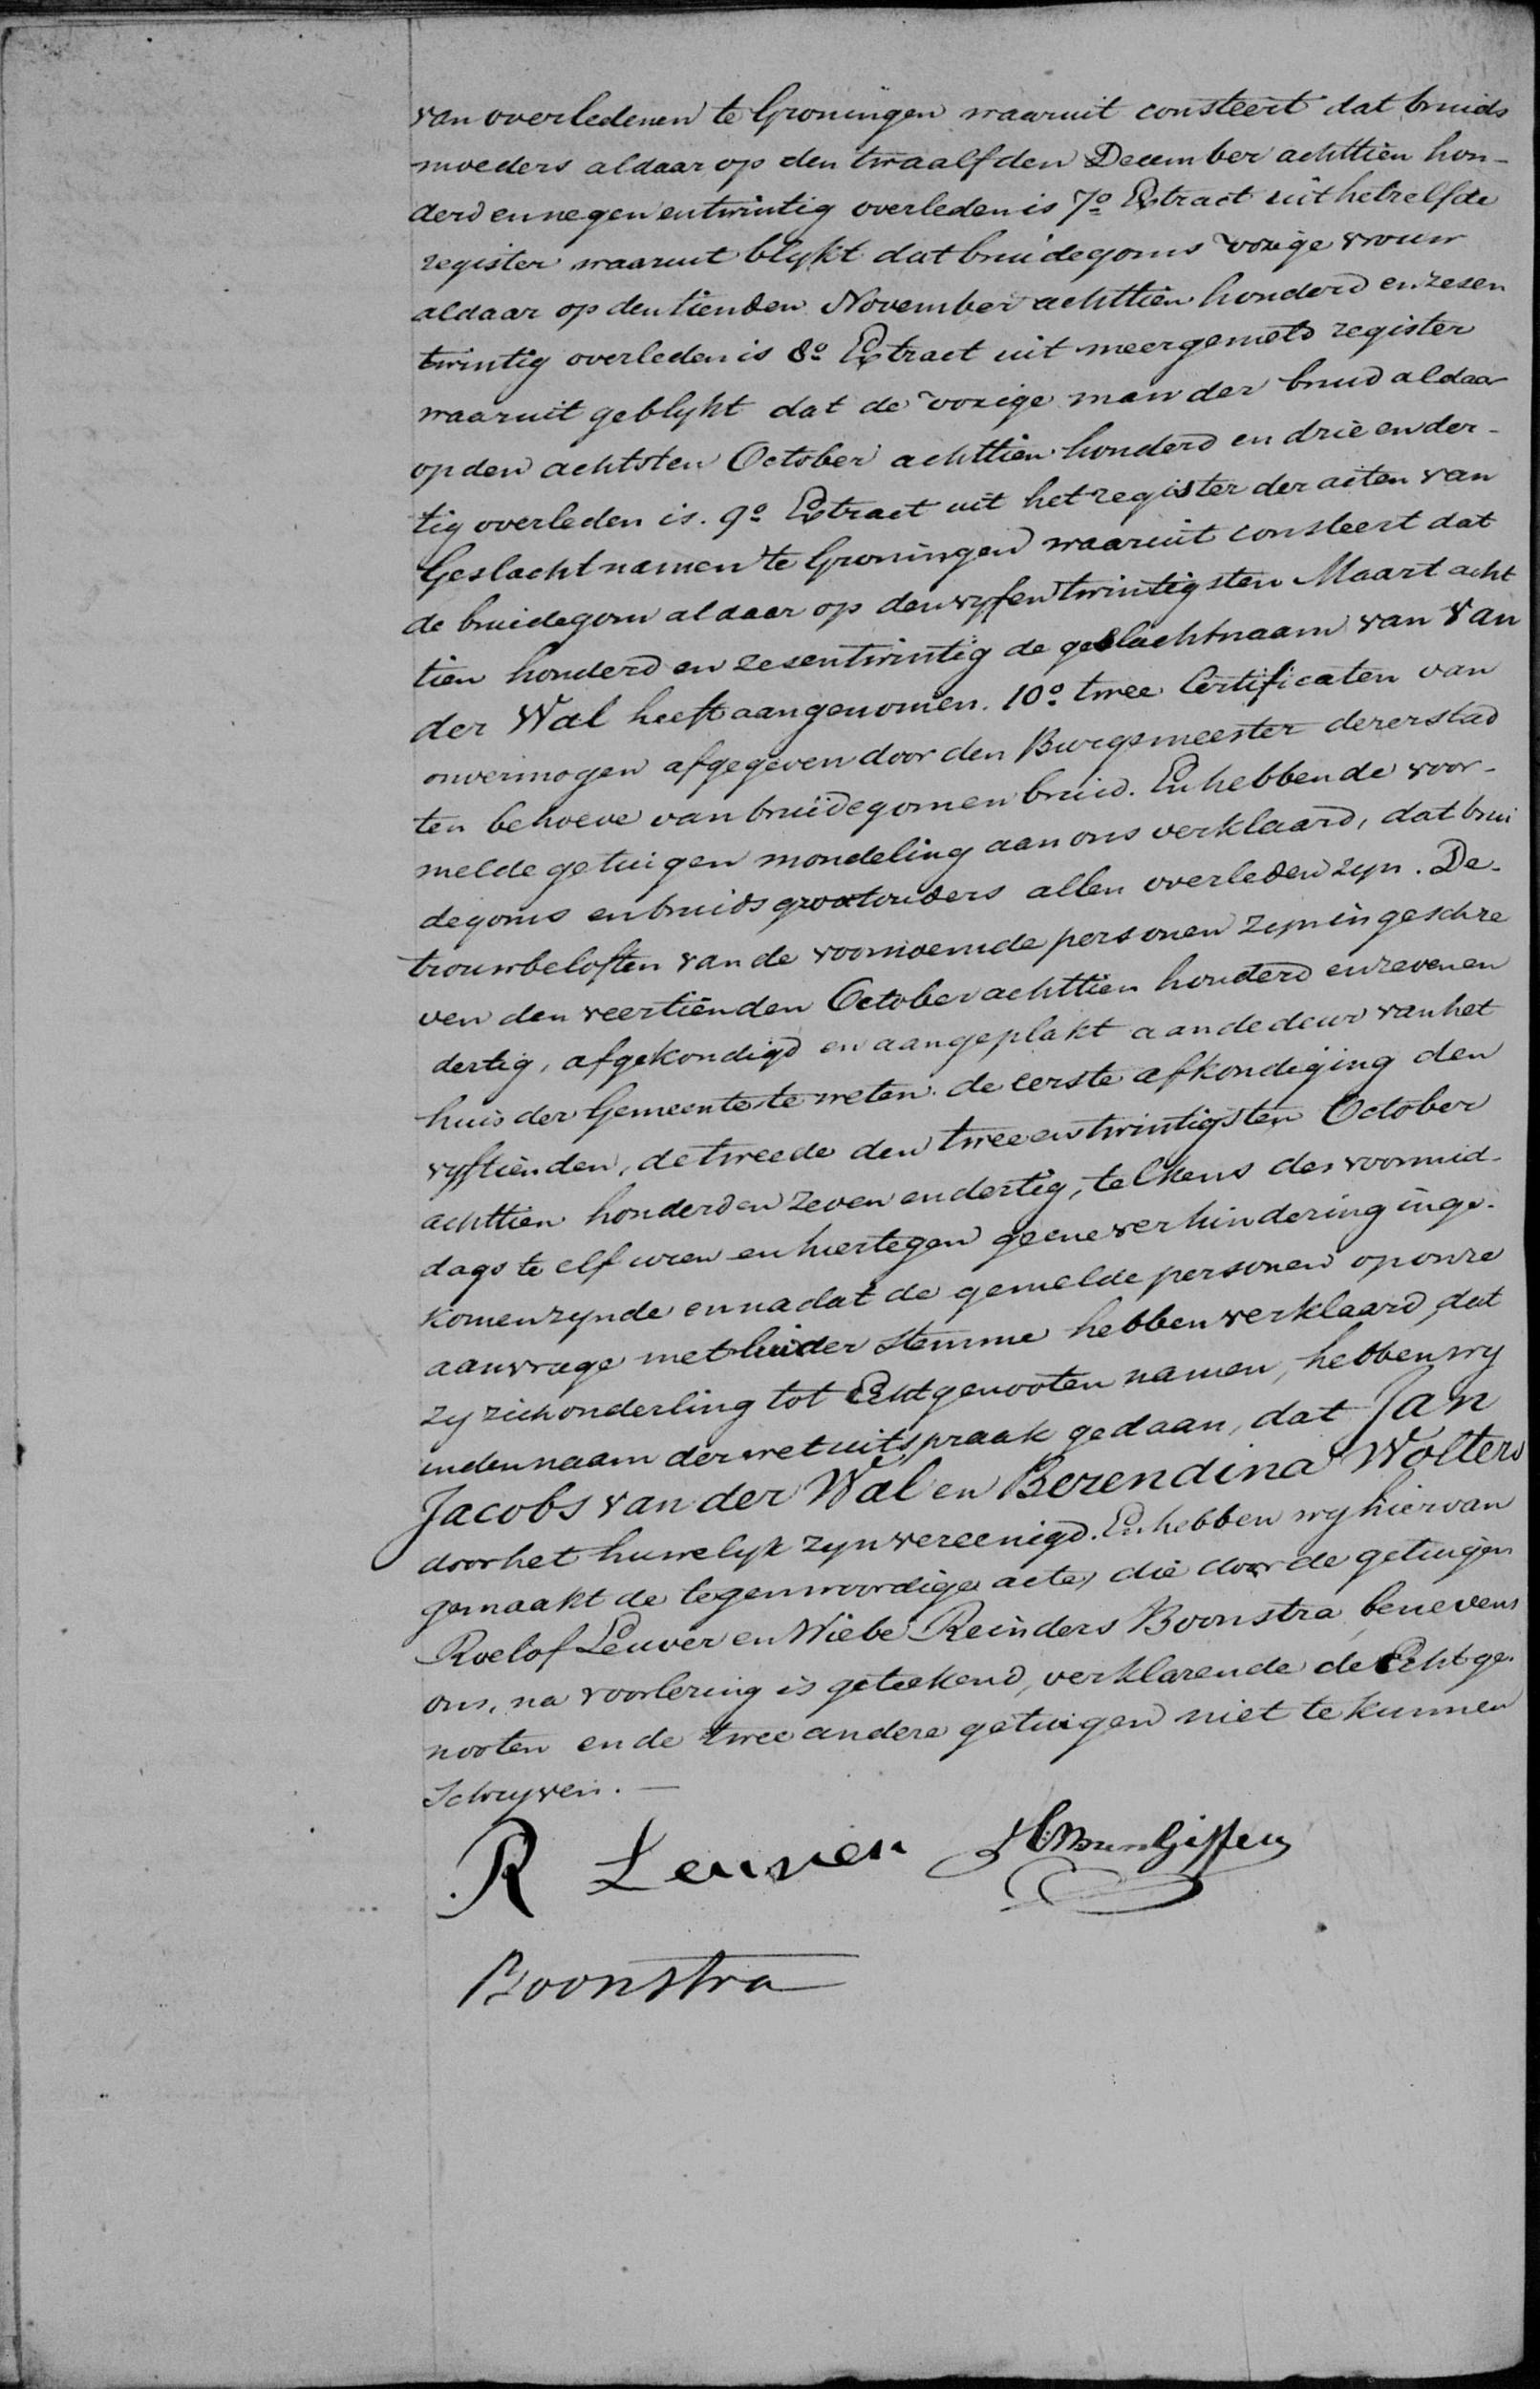 van overledenen te Groningen waaruit consteert dat bruids
moeders aldaar op den twaalfden December achttien hon-
derd en negen en twintig overleden is 7o Extract uit hetzelfde
register waaruit blykt dat bruidegoms vorige vrouw
aldaar op den tienden November achttien honderd en zesen
twintig overleden is 8o Extract uit meergemeld register
waaruit geblykt dat de vorige man der bruid aldaar
op den achtsten October achttien honderd en drie en der-
tig overleden is. 9o Extract uit het register der acten van
Geslachtnamen te Groningen waaruit consteert dat
de bruidegom aldaar op den vyfentwintigsten Maart acht
tien honderd en zesentwintig de geslachtnaam van van
der Wal heeft aangenomen. 10o twee Certificaten van
onvermogen afgegeven door den Burgemeester dezer stad
ten behoeve van bruidegom en bruid. En hebben de voor-
melde getuigen mondeling aan ons verklaard, dat brui
degoms en bruids grootouders allen overleden zyn. De
trouwbeloften van de voornoemde personen zyn ingeschre
ven den veertienden October achttien honderd en zeven en
dertig, afgekondigd en aangeplakt aan de deur van het
huis der Gemeente te weten. de eerste afkondiging den
vyftienden, de tweede den twee en twintigsten October
achttien honderd en zeven en dertig, telkens des voormid-
dags te elf uren en hiertegen geene verhindering inge-
komen zynde en nadat de gemelde personen op onze
aanvrage met luider stemme hebben verklaard, dat
zy zich onderling tot Echtgenooten namen, hebben wy
in den naam der wet uitspraak gedaan, dat Jan
Jacobs van der Wal en Berendina Wolters
door het huwelyk zyn vereenigd. En hebben wy hiervan
gemaakt de tegenwoordige acte, die door de getuigen
Roelof Leuver en Wiebe Reinders Boonstra, benevens
ons, na voorlezing is geteekend, verklarende de Echtge-
nooten en de twee andere getuigen niet te kunnen
Schryven. —
R Leuver
Boonstra